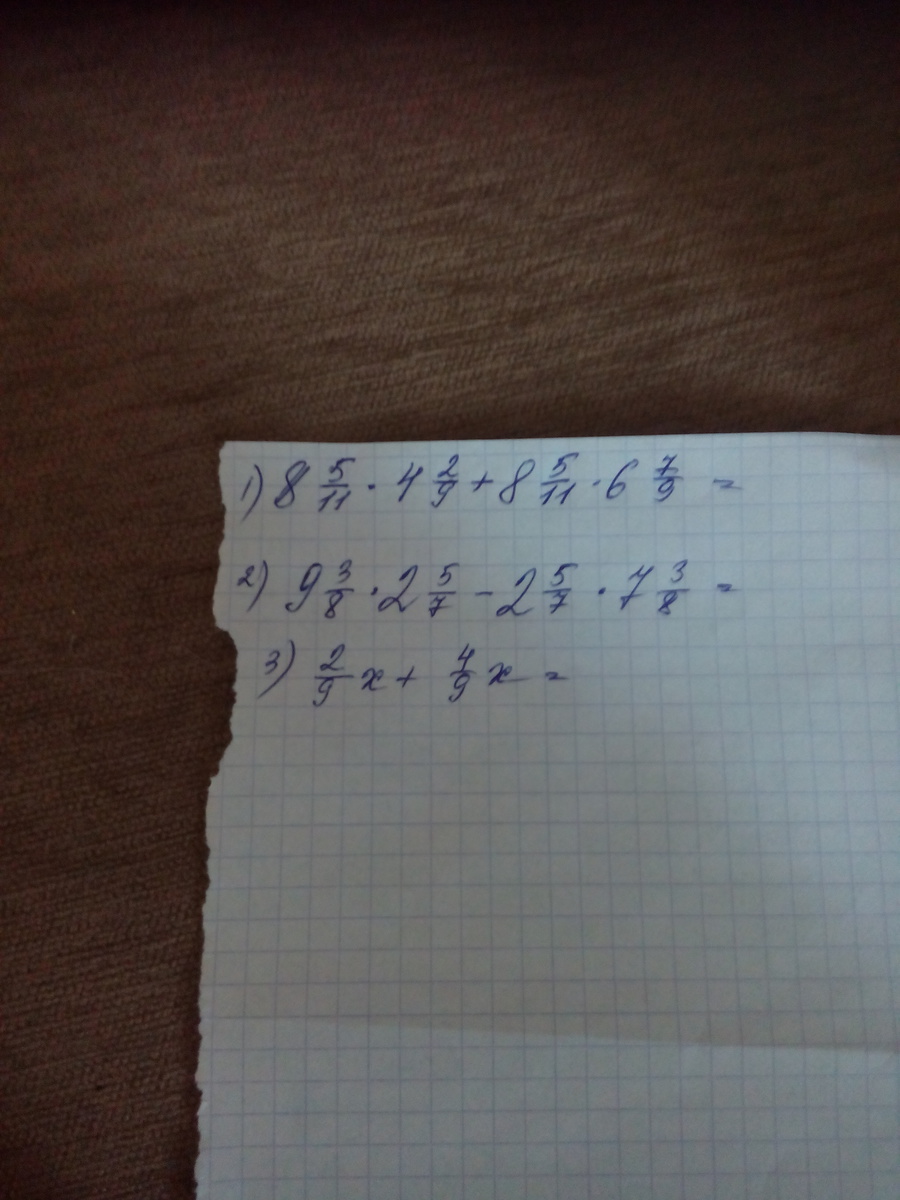 1) 8 5/11 · 4 2/9 + 8 5/11 · 6 7/9 =
2) 9 3/8 · 2 5/7 - 2 5/7 · 7 3/8 =
3) 2/9 x + 4/9 x =